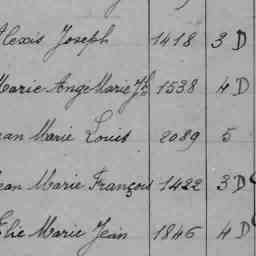 Alexis Joseph 1418 3 D
Marie Ange Marie Jh 1538 4 D
ean Marie Louis 2089 5
ean Marie François 1422 3 D
Elie Marie Jean 1846 4 D